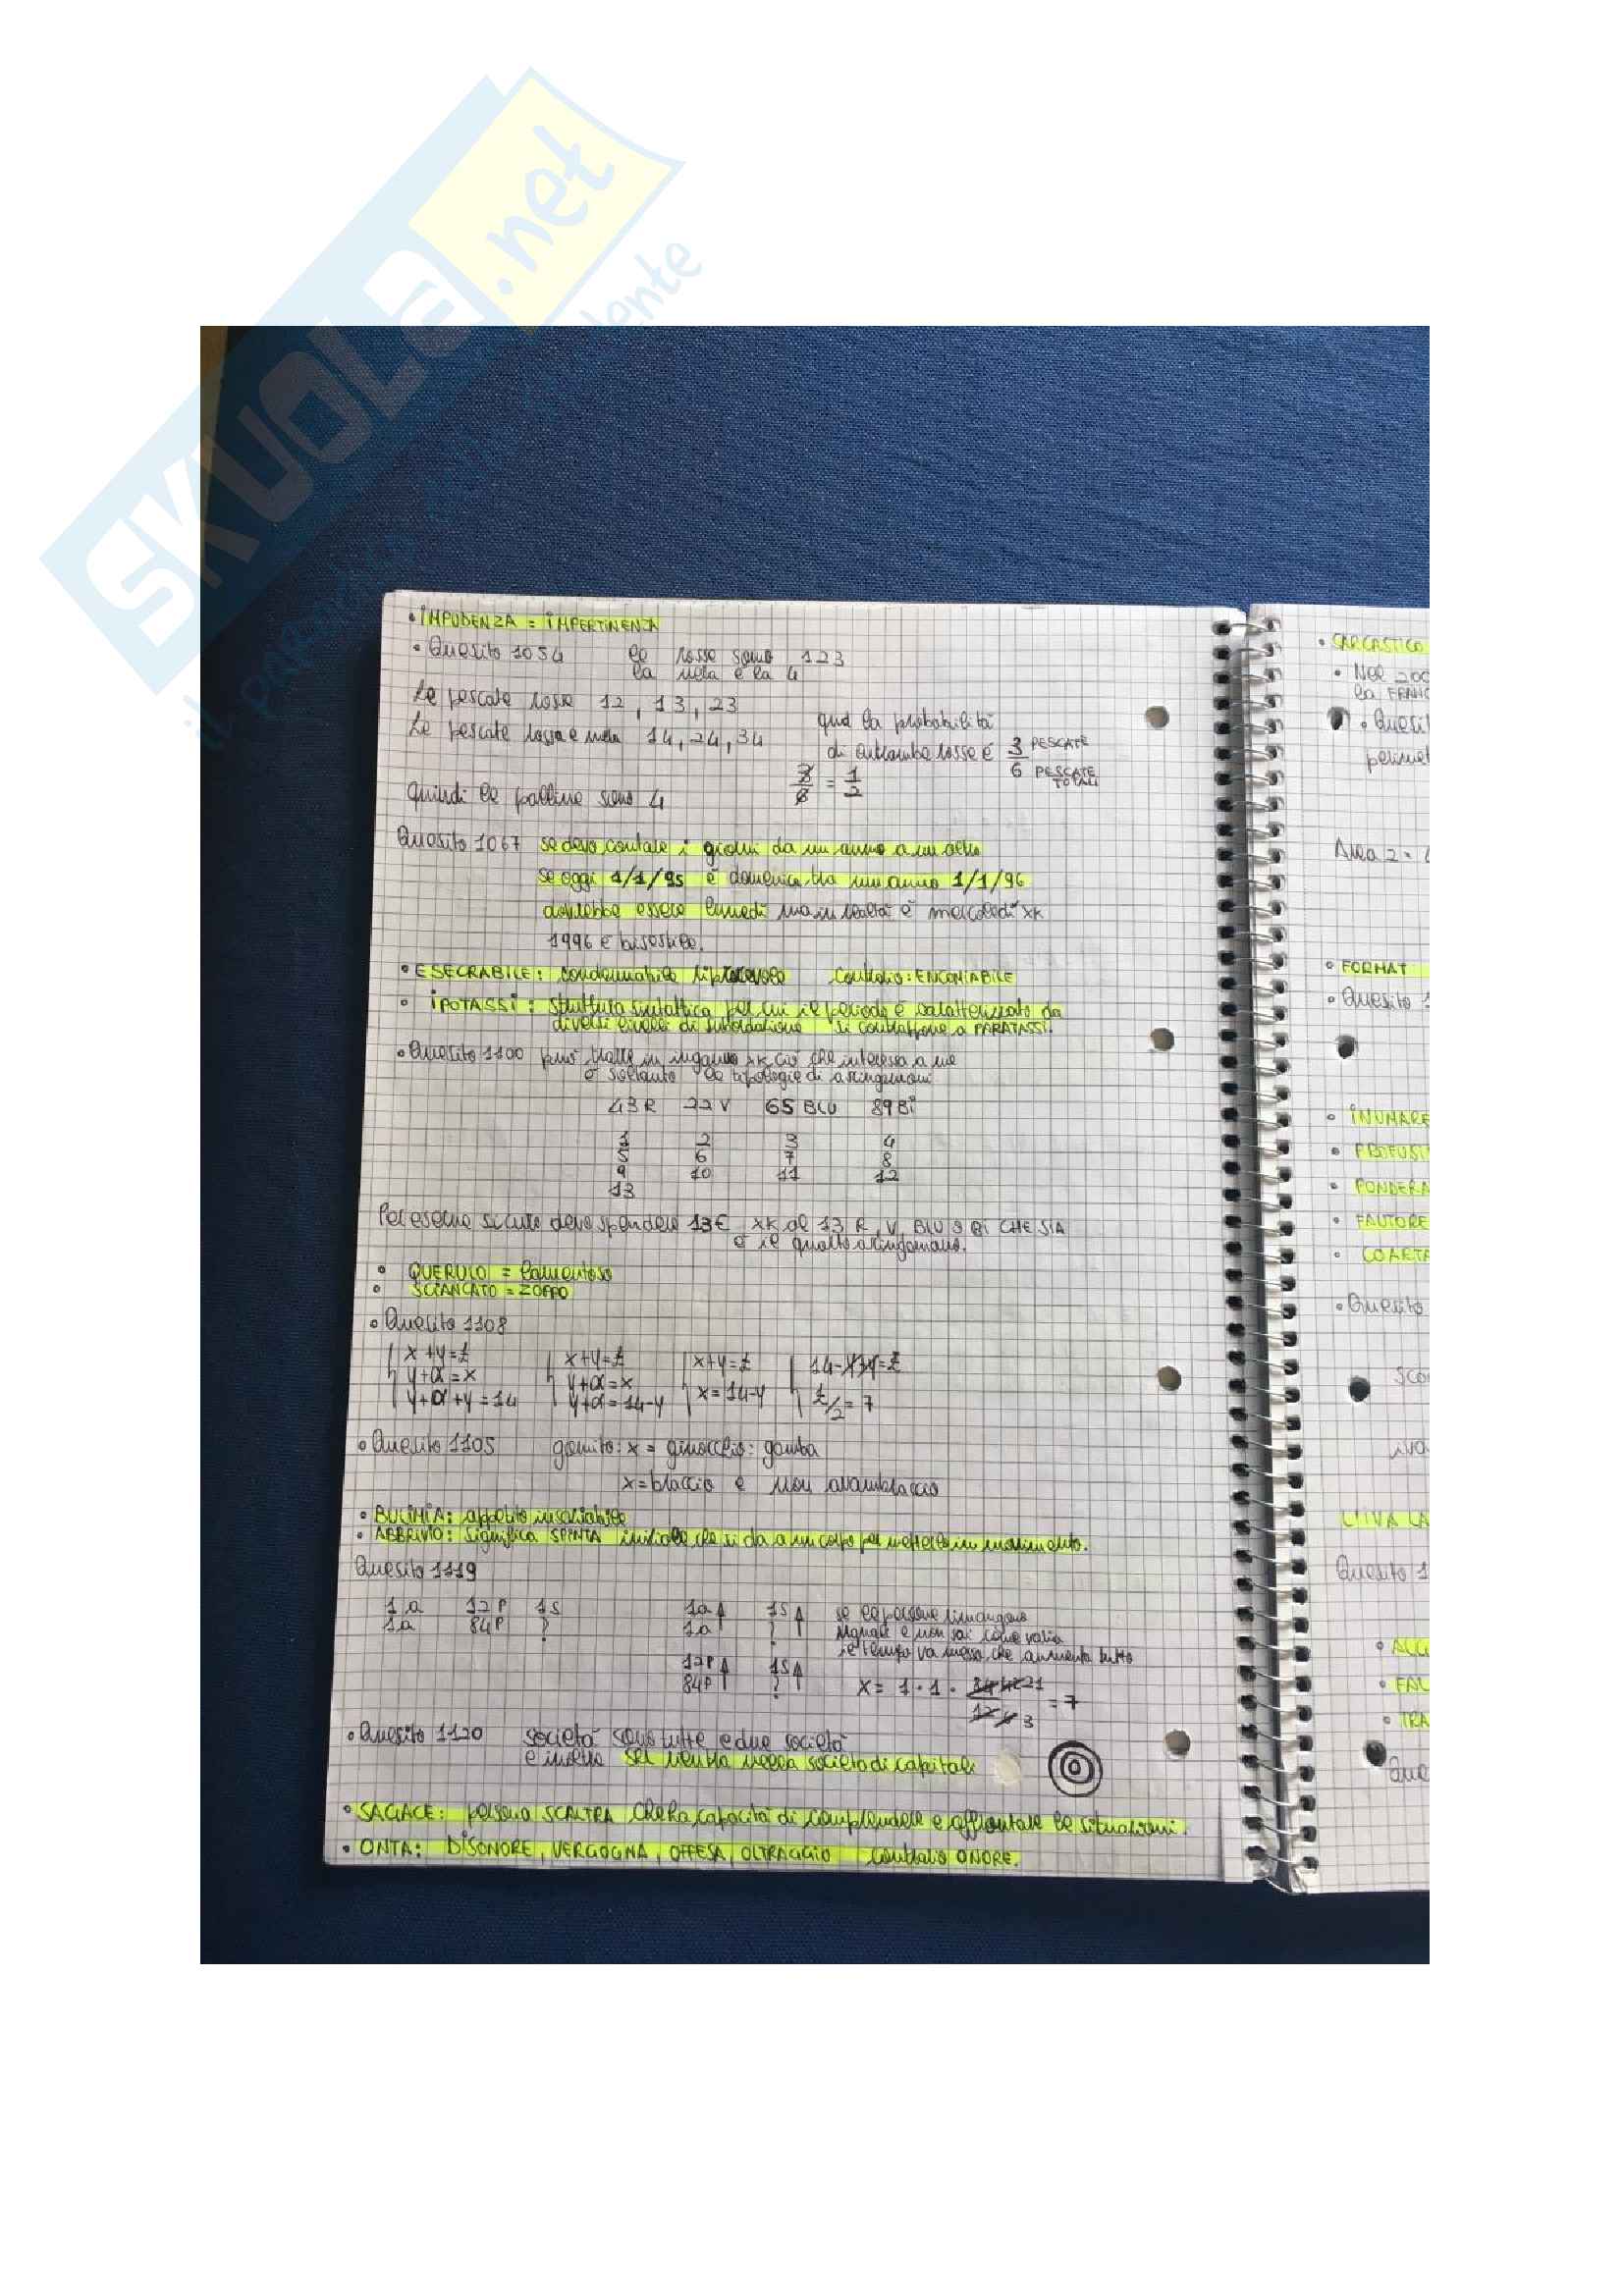 SKUOLA.net
• IMPUDENZA = IMPERTINENZA
• Quesito 1054 le rosse sono 123
la nera è la 4
Le pescate rosse 12, 13, 23
Le pescate rossa e nera 14, 24, 34
qual la probabilità
di entrambe rosse è 3/6 PESCATE
PESCATE TOTALI
3/6 = 1/2
quindi le palline sono 4
Quesito 1067 se devo contare i giorni da un anno a un altro
se oggi 1/1/95 è domenica tra un anno 1/1/96
dovrebbe essere lunedì ma in realtà è mercoledì xk
1996 è bisestile.
• ESECRABILE: condannabile riprovevole Contrario: ENCOMIABILE
• IPOTASSI: struttura sintattica per cui il periodo è caratterizzato da
diversi livelli di subordinazione si contrappone a PARATASSI.
• Quesito 1100 può trarre in inganno xk ciò che interessa a me
è soltanto le tipologie di asciugamani
43 R 22 V 65 BLU 89 Bi
1 2 3 4
5 6 7 8
9 10 11 12
13
Per essere sicuro devo spendere 13€ xk al 13 R, V, BLU o Bi CHE SIA
è il quarto asciugamano.
• QUERULO = lamentoso
• SCIANCATO = ZOPPO
• Quesito 1108
x+y=z x+y=z x+y=z 14-y+y=z
y+a=x y+a=x x=14-y z/2=7
y+a+y=14 y+a=14-y
• Quesito 1105 gomito: x = ginocchio: gamba
x=braccio e non avambraccio
• BULIMIA: appetito insaziabile
• ABBRIVIO: significa SPINTA iniziale che si da a un corpo per metterlo in movimento.
Quesito 1119
1a 12P 1S 1a↑ 1S↑ se le persone rimangono
1a 84P ? 1a ? uguali e non sai come varia
il tempo va messo che aumenta tutto
12P↑ 1S↑
84P ? x = 1 · 1 · 84 42 21 / 12 6 3 = 7
• Quesito 1120 società sono tutte e due società
e inoltre Srl rientra nella società di capitali
• SAGACE: persona SCALTRA che ha capacità di comprendere e affrontare le situazioni.
• ONTA: DISONORE, VERGOGNA, OFFESA, OLTRAGGIO contrario ONORE.
• SARCASTICO
• Nel 200
la FRANC
• Quesit
perimet
Area 2 =
• FORMAT
• Quesito 1
• INUMARE
• PROFUSI
• PONDERA
• FAUTORE
• COARTA
• Quesito
Quesito 1
• FAL
• TRA
Que